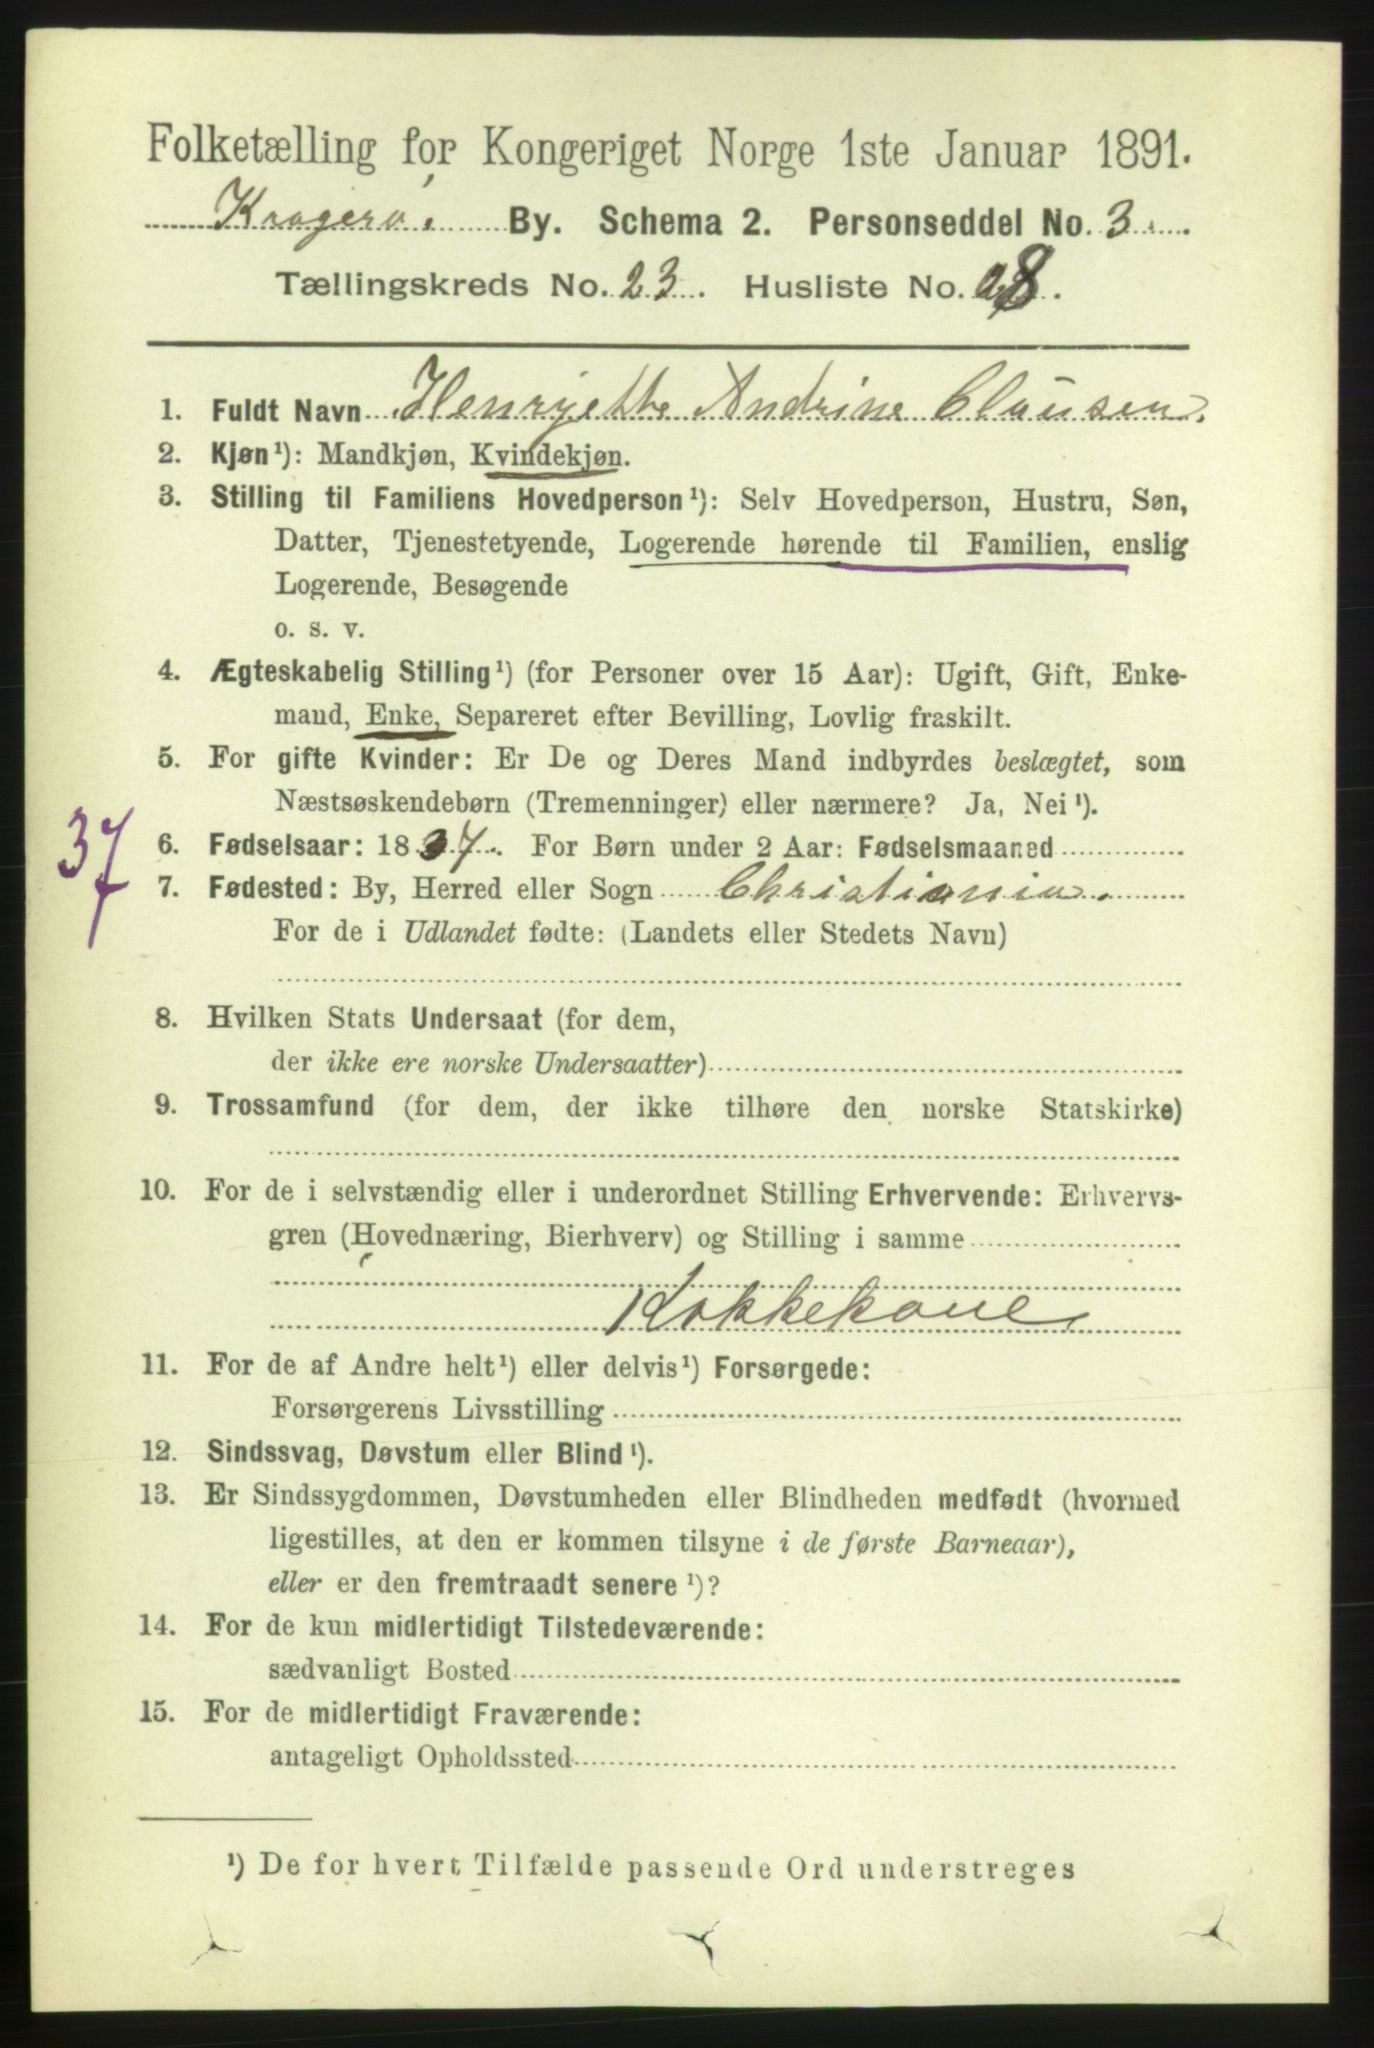 Folketælling for Kongeriget Norge 1ste Januar 1891.
Kragerø. By. Schema 2. Personseddel No. 3.
Tællingskreds No. 23. Husliste No. 28.
1. Fuldt Navn Henryette Andrine Clausen.
2. Kjøn¹): Mandkjøn, Kvindekjøn.
3. Stilling til Familiens Hovedperson¹): Selv Hovedperson, Hustru, Søn,
Datter, Tjenestetyende, Logerende hørende til Familien, enslig
Logerende, Besøgende
o. s. v.
4. Ægteskabelig Stilling¹) (for Personer over 15 Aar): Ugift, Gift, Enke-
mand, Enke, Separeret efter Bevilling, Lovlig fraskilt.
5. For gifte Kvinder: Er De og Deres Mand indbyrdes beslægtet, som
Næstsøskendebørn (Tremenninger) eller nærmere? Ja, Nei¹).
37
6. Fødselsaar: 1837. For Børn under 2 Aar: Fødselsmaaned
7. Fødested: By, Herred eller Sogn Christiania.
For de i Udlandet fødte: (Landets eller Stedets Navn)
8. Hvilken Stats Undersaat (for dem,
der ikke ere norske Undersaatter)
9. Trossamfund (for dem, der ikke tilhøre den norske Statskirke)
10. For de i selvstændig eller i underordnet Stilling Erhvervende: Erhvervs-
gren (Hovednæring, Bierhverv) og Stilling i samme
Kokkekone
11. For de af Andre helt¹) eller delvis¹) Forsørgede:
Forsørgerens Livsstilling
12. Sindssvag, Døvstum eller Blind¹).
13. Er Sindssygdommen, Døvstumheden eller Blindheden medfødt (hvormed
ligestilles, at den er kommen tilsyne i de første Barneaar),
eller er den fremtraadt senere¹)?
14. For de kun midlertidigt Tilstedeværende:
sædvanligt Bosted
15. For de midlertidigt Fraværende:
antageligt Opholdssted
¹) De for hvert Tilfælde passende Ord understreges